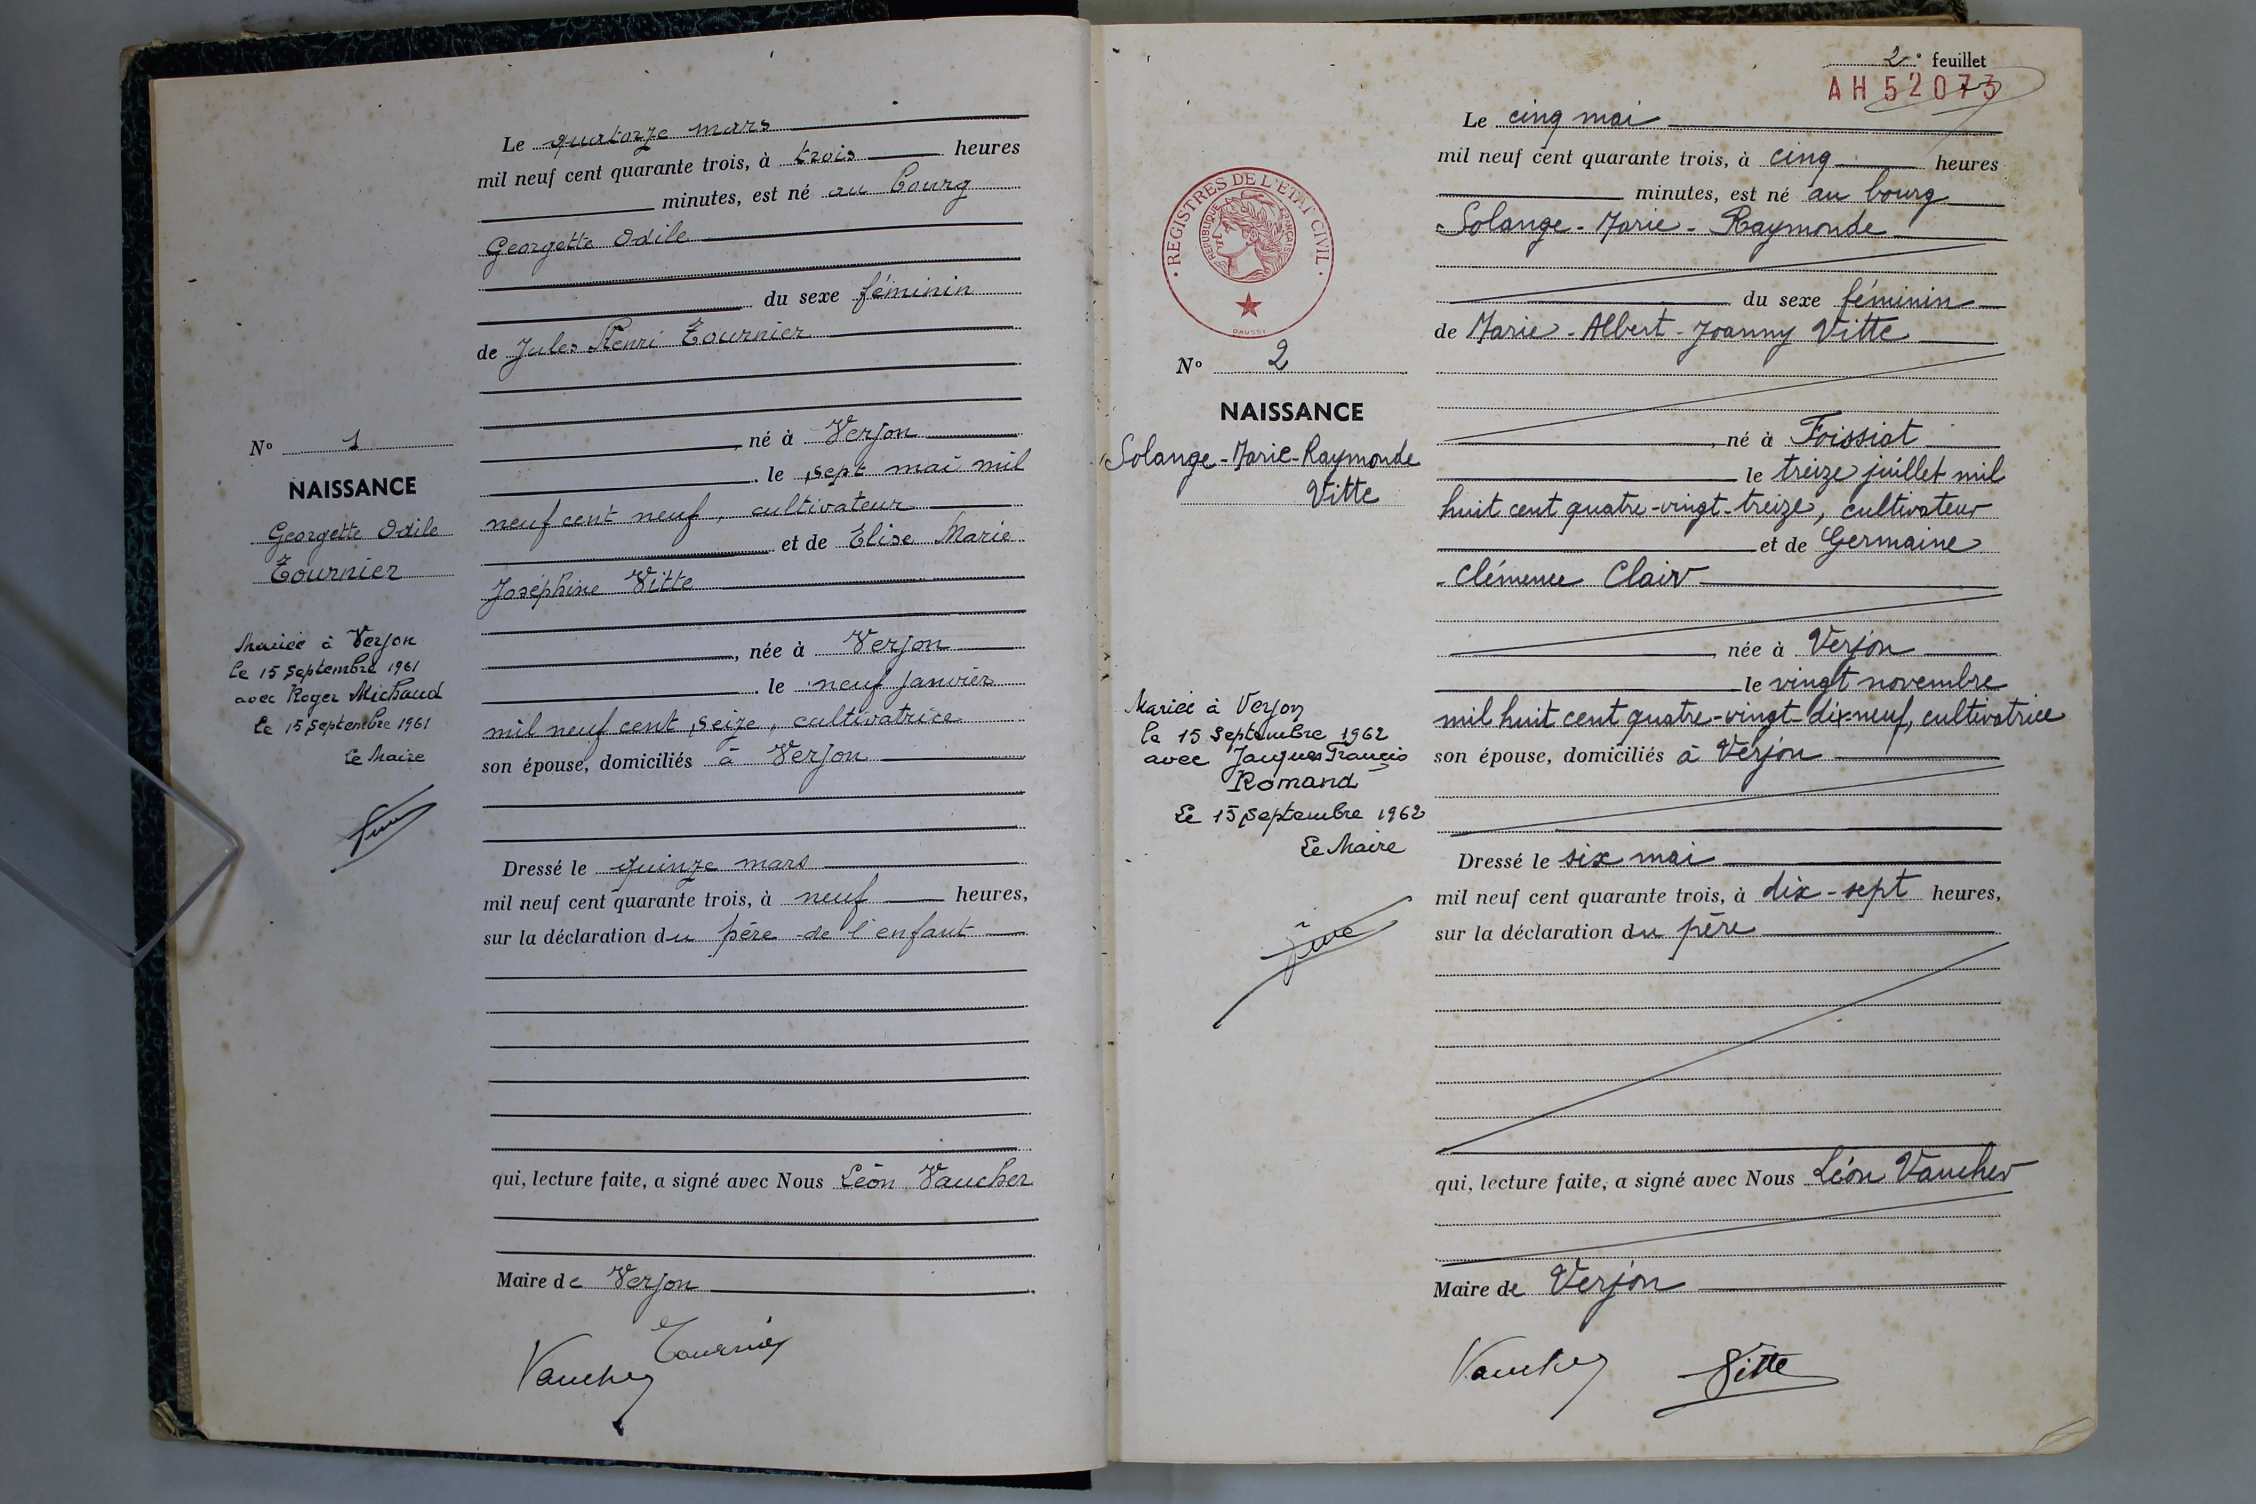 Le quatorze mars
mil neuf cent quarante trois, à trois heures
minutes, est né au bourg
Georgette Odile
du sexe féminin
de Jules Henri Tournier
né à Verjon
le sept mai mil
neuf cent neuf, cultivateur
et de Elise Marie
Joséphine Vitte
, née à Verjon
le neuf janvier
mil neuf cent seize, cultivatrice
son épouse, domiciliés à Verjon
Dressé le quinze mars
mil neuf cent quarante trois, à neuf heures,
sur la déclaration du père de l'enfant
qui, lecture faite, a signé avec Nous Léon Vaucher
Maire de Verjon
Tournier
Vaucher
No 1
NAISSANCE
Georgette Odile
Tournier
Mariée à Verjon
le 15 Septembre 1961
avec Roger Michaud
Le 15 Septembre 1961
Le Maire
2e feuillet
AH 52073
REGISTRES DE L'ETAT CIVIL
REPUBLIQUE FRANÇAISE
DAUSSY
No 2
NAISSANCE
Solange-Marie-Raymonde
Vitte
Mariée à Verjon
le 15 Septembre 1962
avec Jacques François
Romand
Le 15 Septembre 1962
Le Maire
Le cinq mai
mil neuf cent quarante trois, à cinq heures
minutes, est né au bourg
Solange-Marie-Raymonde
du sexe féminin
de Marie-Albert-Joanny Vitte
, né à Foissiat
le treize juillet mil
huit cent quatre-vingt-treize, cultivateur
et de Germaine
Clémence Clair
, née à Verjon
le vingt novembre
mil huit cent quatre-vingt-dix-neuf, cultivatrice
son épouse, domiciliés à Verjon
Dressé le six mai
mil neuf cent quarante trois, à dix-sept heures,
sur la déclaration du père
qui, lecture faite, a signé avec Nous Léon Vaucher
Maire de Verjon
Vaucher Vitte